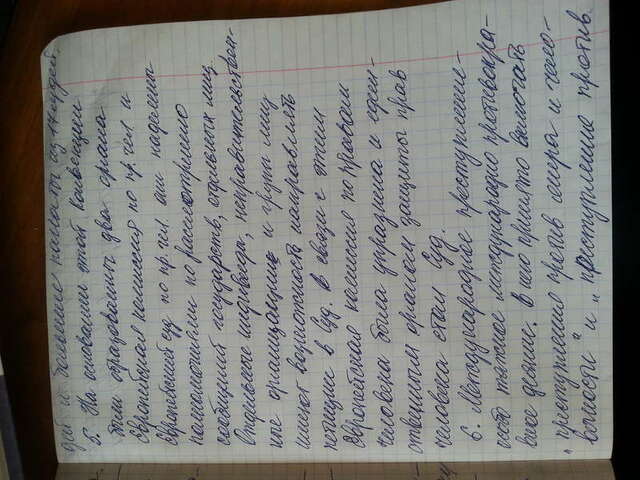 ры и Большие палаты из 17 судей.
5. На основании этой Конвенции
были образованы два органа
Европейская комиссия по пр. чел и
Европейский суд по пр. чел. они наделены
полномочиями по рассмотрению
сообщений государств, отдельных лиц.
Отдельные индивиды, неправительствен-
ные организации и группы лиц
имеют возможность направлять
петиции в Суд. В связи с этим
Европейская комиссия по правам
человека была упразднена и един-
ственным органом защиты прав
человека стал Суд.
6. Международные преступления -
особо тяжкое международно противопра-
вное деяние. В него принято включать
"преступления против мира и чело-
вечности" и "преступления против